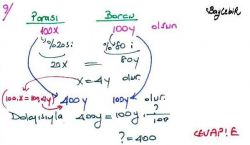 9/
Parası Borcu
100X 100y olsun
%20si %80i
20x = 80y
x=4y olur.
(100.x=100.4y) 400y 100y olur.
Dolayısıyla 400y=100y.?/100
?=400
CEVAP: E